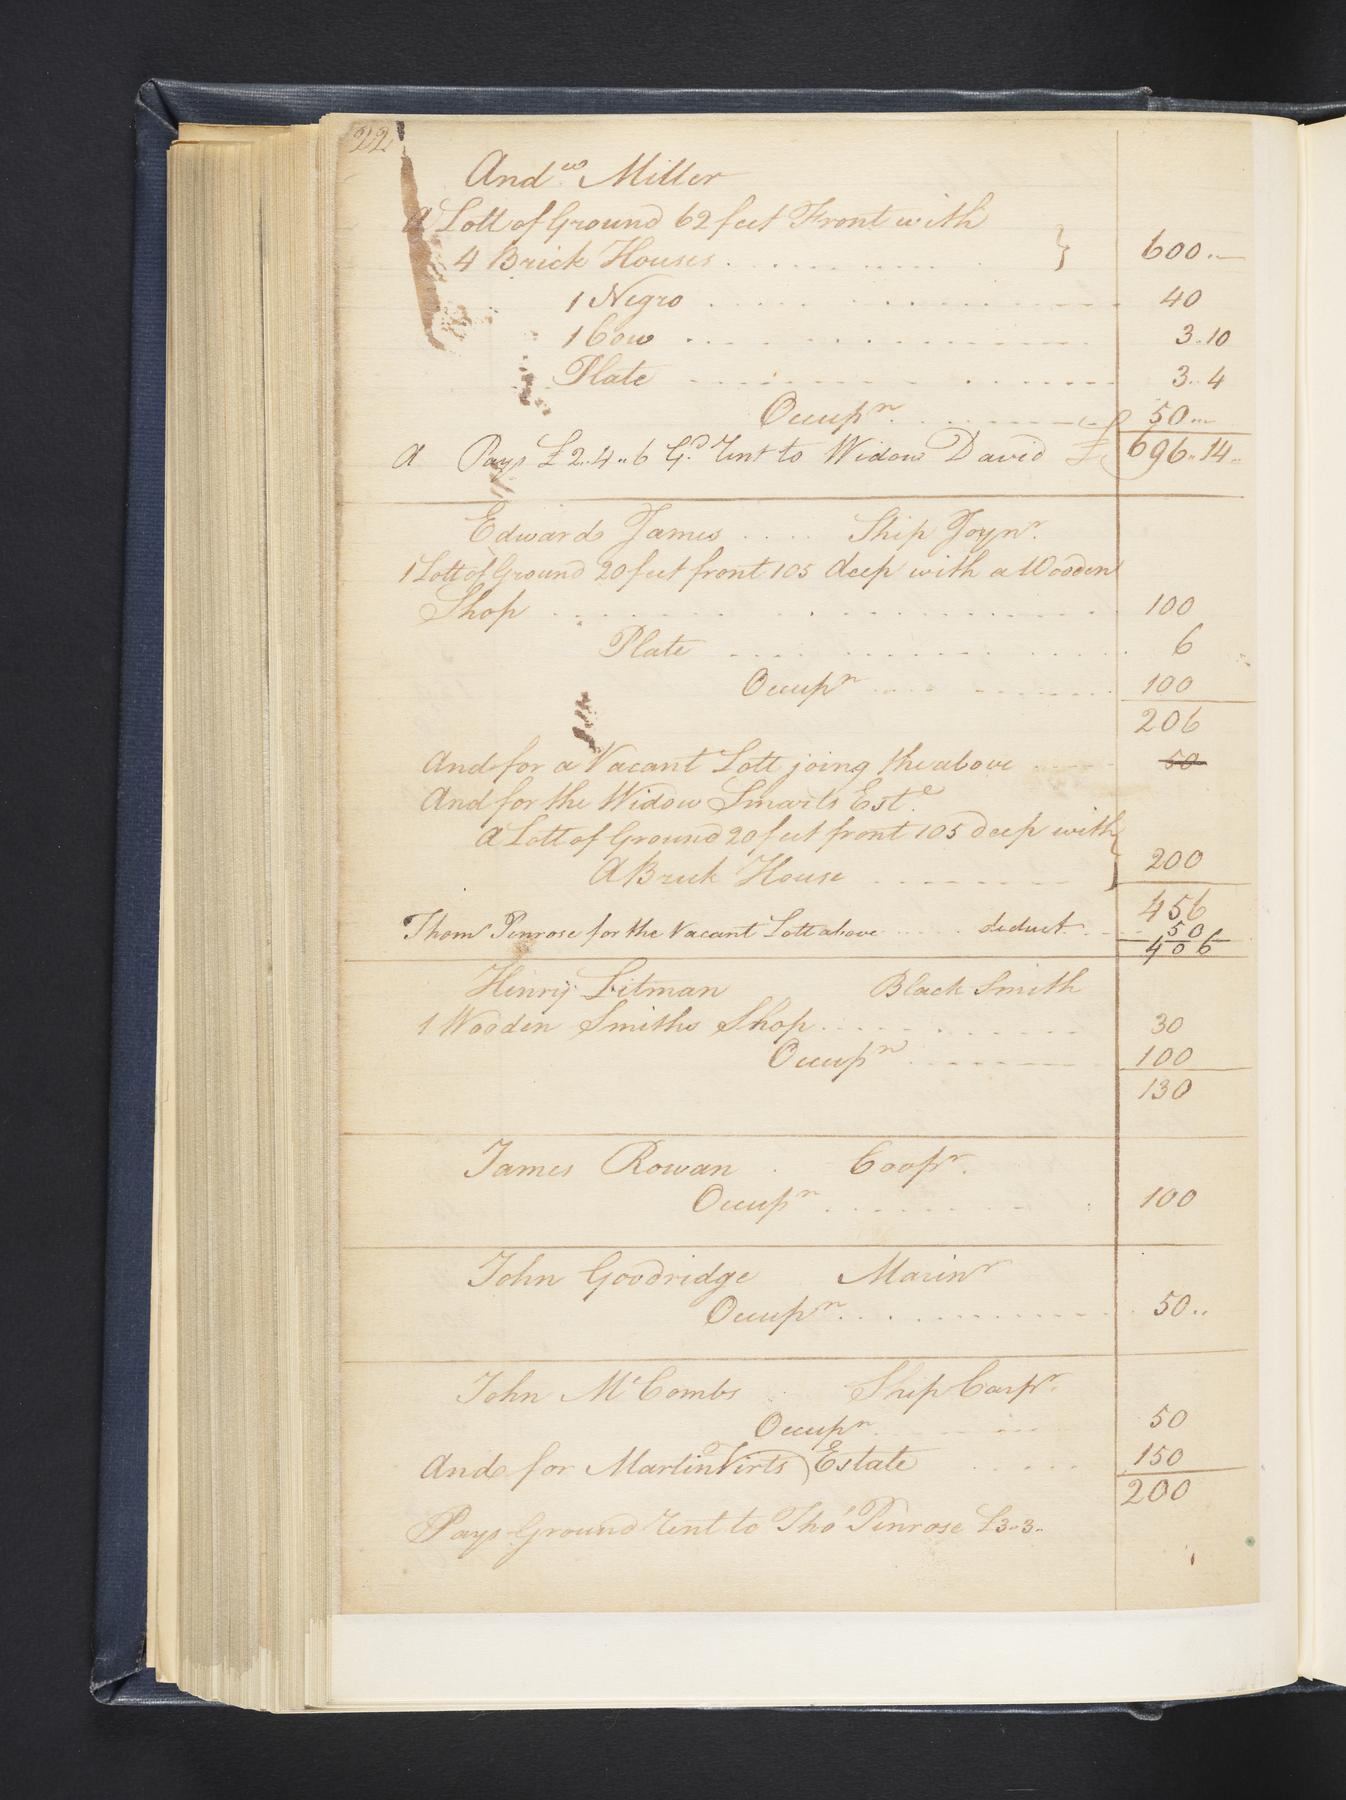 22
Andw. Miller
A Lott of Ground 62 feet Front with
4 Brick Houses . . . . . . . } 600 .. —
1 Negro . . . . . . . 40
1 Cow . . . . . . . 3 .. 10
Plate . . . . . . . 3 .. 4
Occupn. . . . . . . 50 ..
A Pays £ 2 .. 4 .. 6 Gd. Rent to Widow David £ 696 .. 14 ..
Edward James . . . . Ship Joynr.
1 Lott of Ground 20 feet front 105 deep with a Wooden
Shop . . . . . . . 100
Plate . . . . . . . 6
Occupn . . . . . . . 100
206
And for a Vacant Lott joing the above . . . . 50
And for the Widow Smarts Este.
A Lott of Ground 20 feet front 105 deep with }
A Brick House . . . . . . . 200
456
Thoms Penrose for the Vacant Lott above . . . . deduct . . . 50
406
Henry Litman Black Smith
1 Wooden Smiths Shop . . . . . . . 30
Occupn . . . . . . . 100
130
James Rowan . Coopr.
Occupn . . . . . . . 100
John Goodridge Marinr
Occupn . . . . . . . 50 ..
John McCombs Ship Carpr.
Occupn . . . . 50
And for Martin Virts Estate . . . . 150
200
Pays Ground Rent to Thos Penrose £3 .. 3 ..